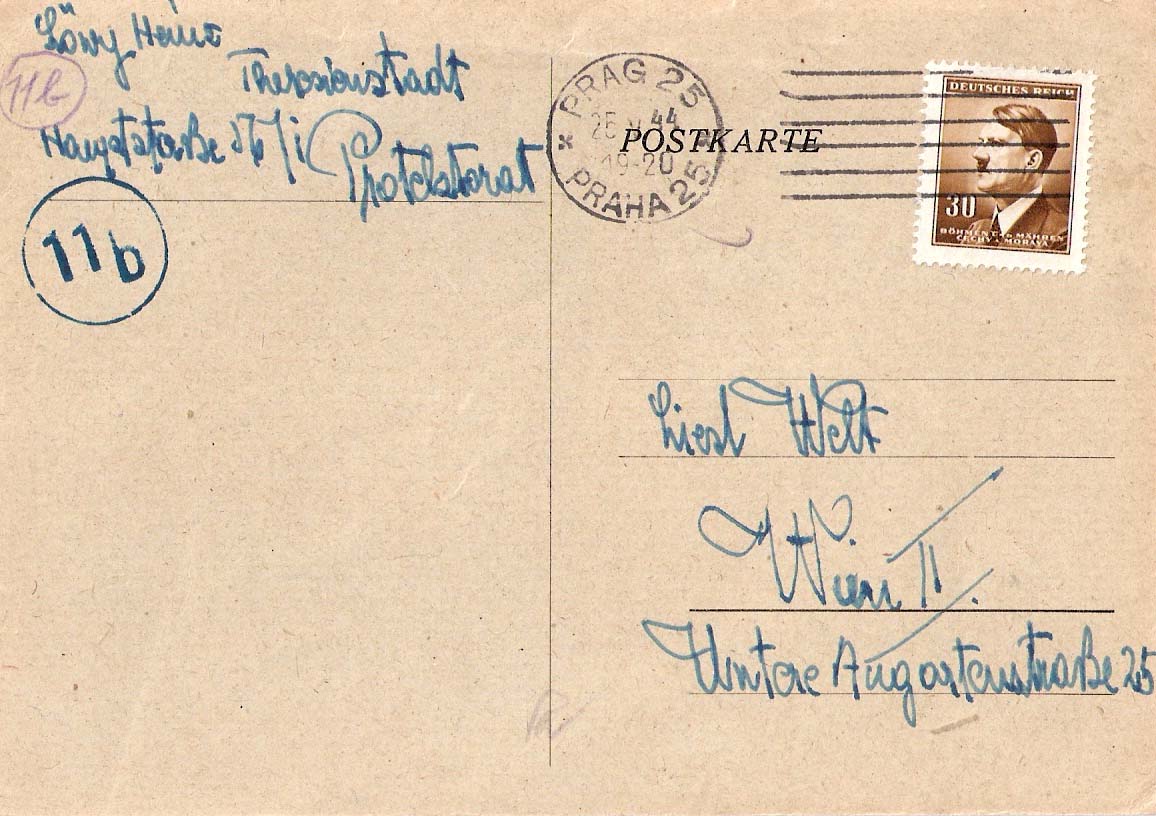 Löwy Heinz
11b
Theresienstadt
Hauptstraße
Protektorat
11b
PRAG 25
44
19-20
PRAHA 25
POSTKARTE
DEUTSCHES REICH
30
BÖHMEN u. MÄHREN
ČECHY a MORAVA
Liesl Welt
Wien II.
Untere Augartenstraße 25